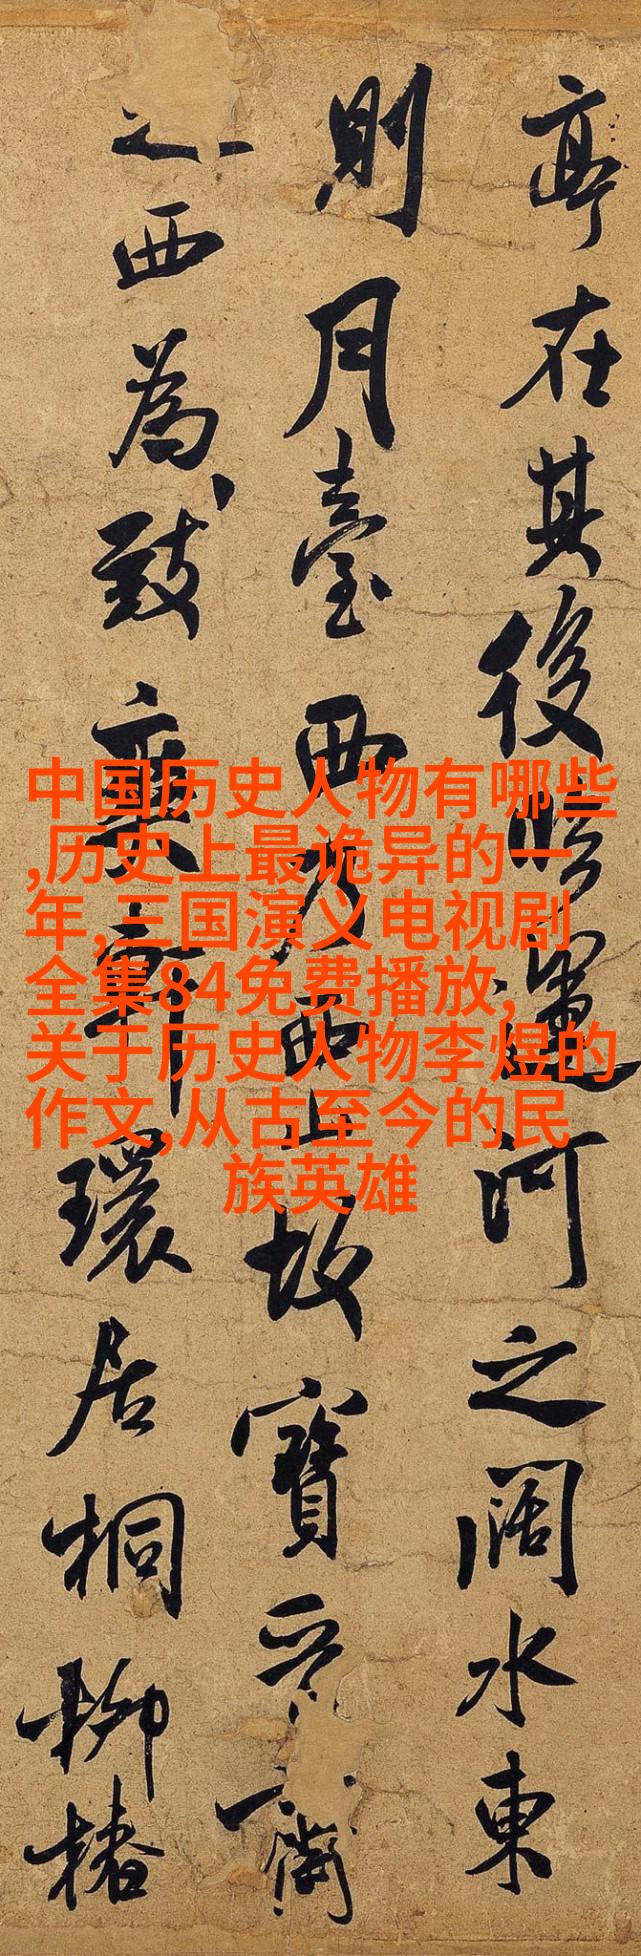 亭在其後臨運河之闊水東
則月臺西乃西山故寶晉齋
之西為致爽軒環居桐柳椿
中国历史人物有哪些
,历史上最诡异的一
年,三国演义电视剧
全集84免费播放,
关于历史人物李煜的
作文,从古至今的民
族英雄